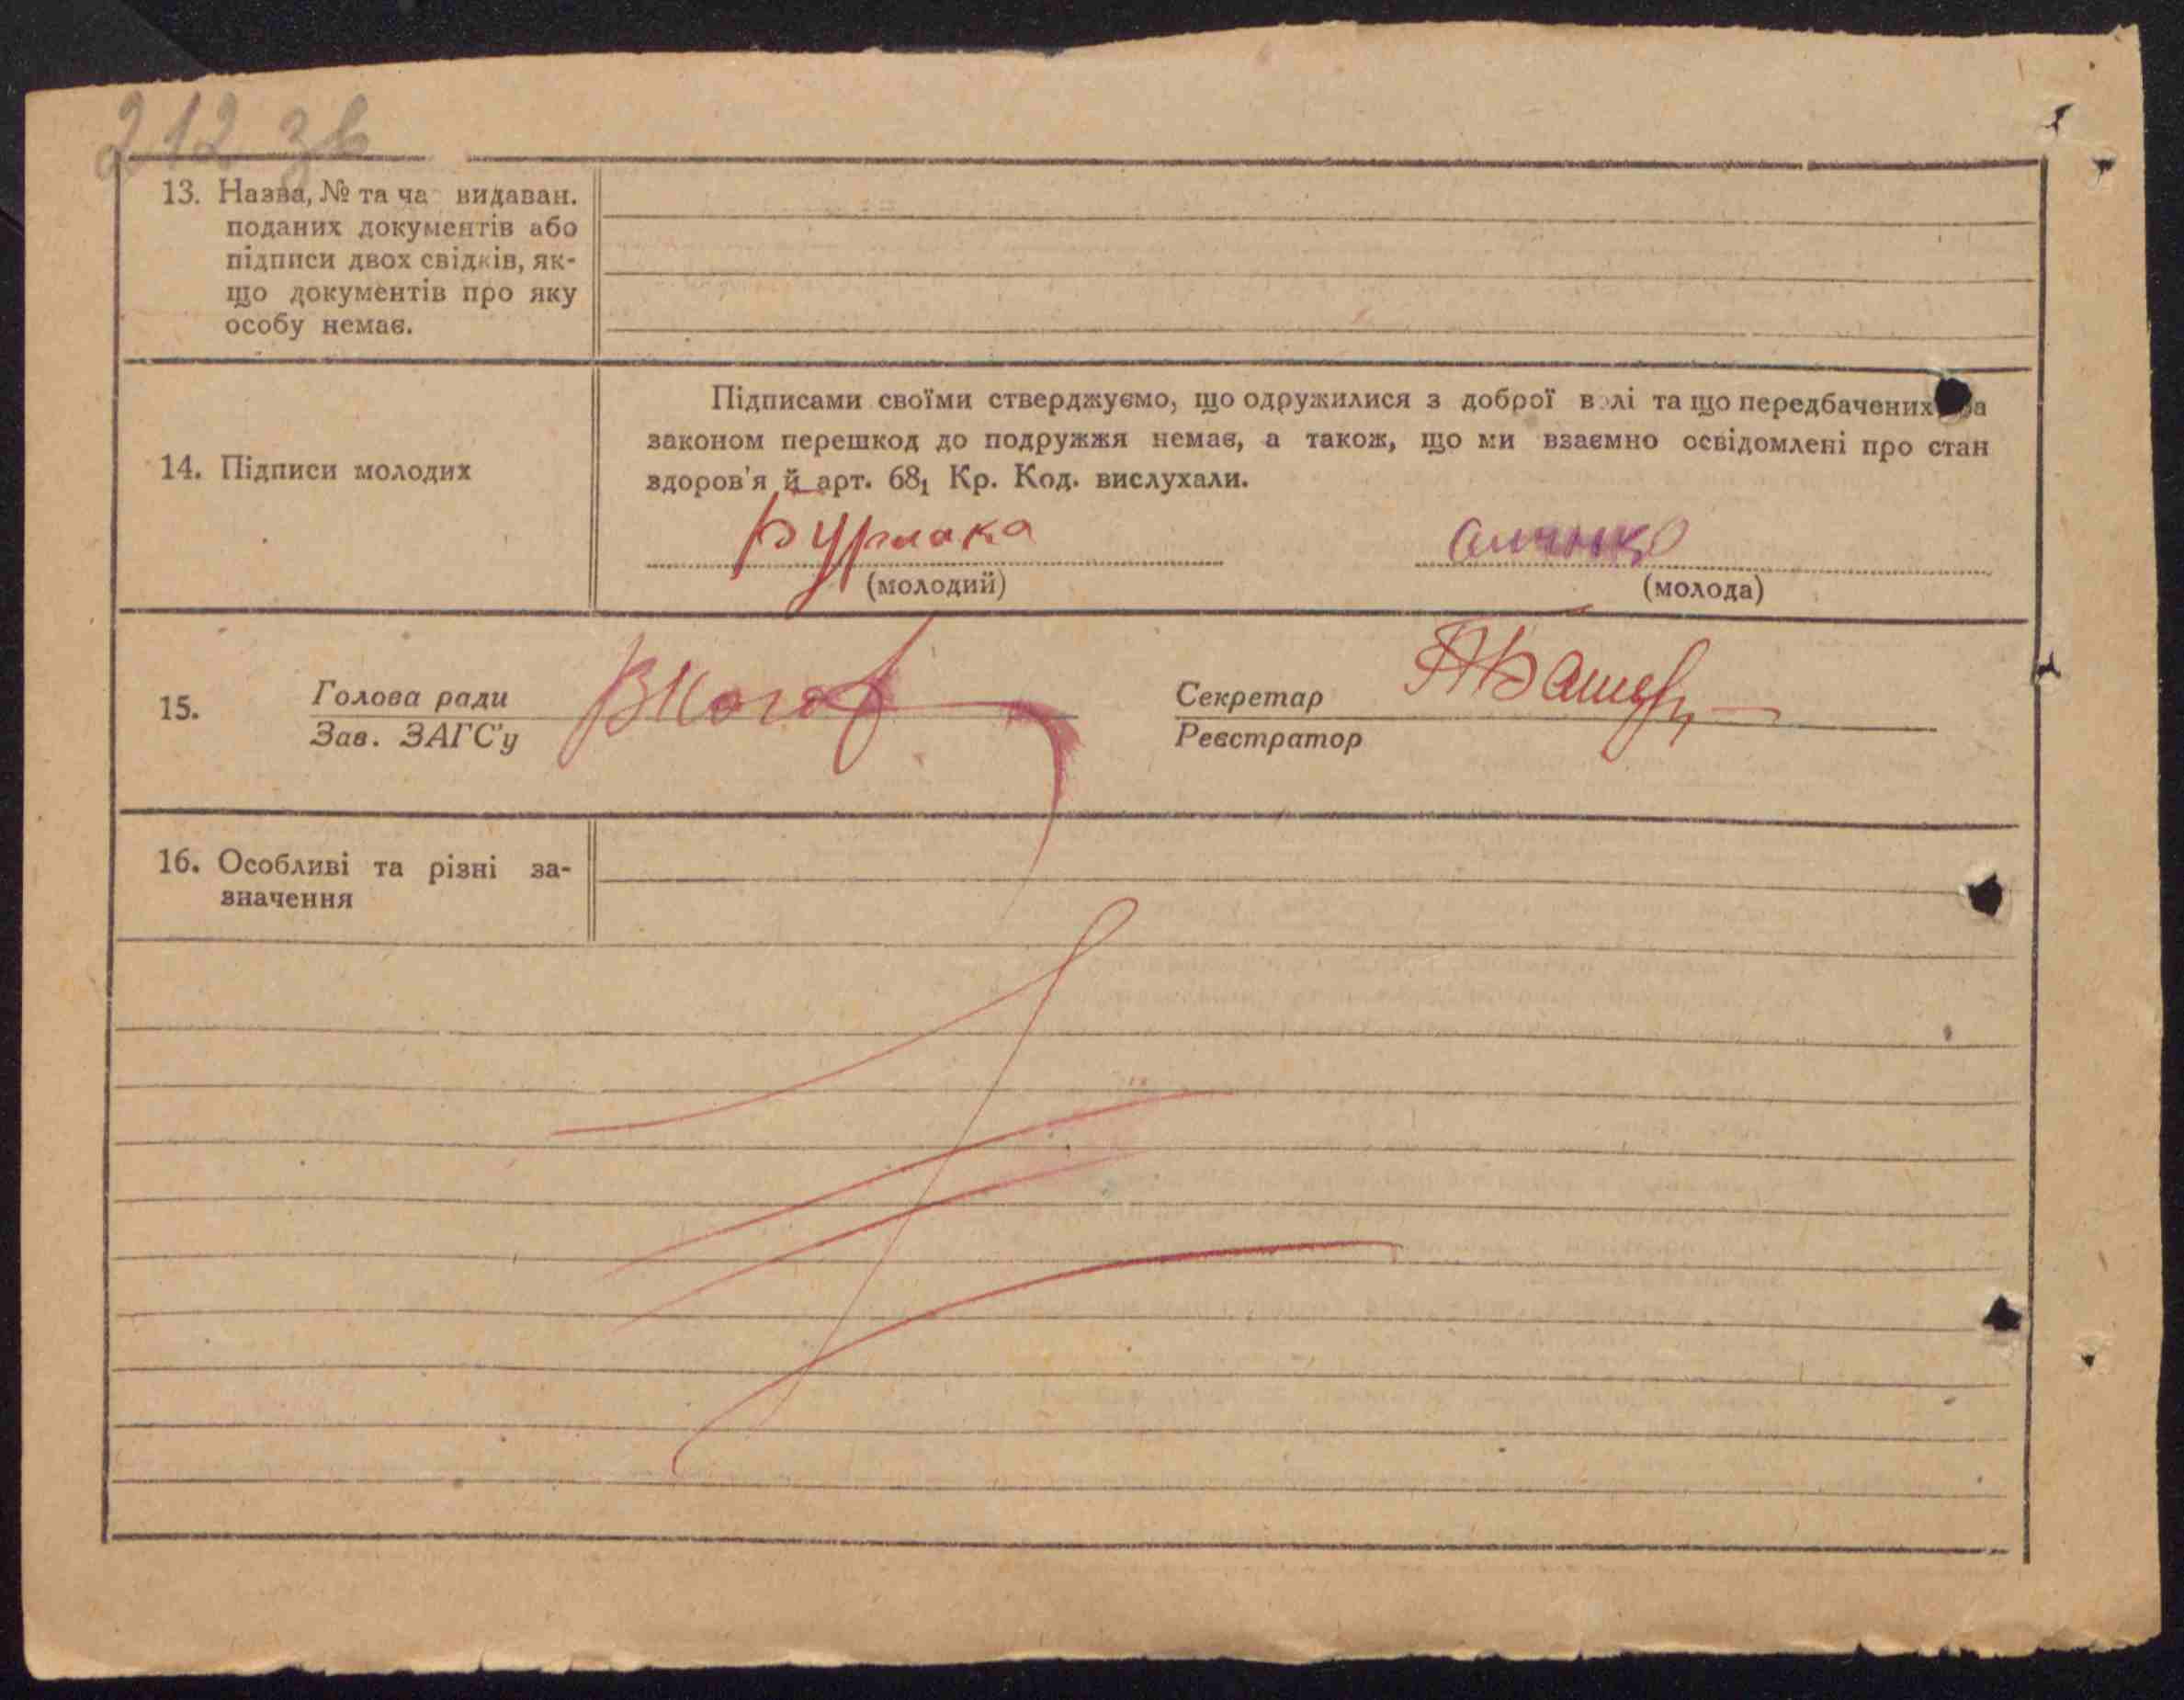 212 зв
13. Назва, № та ча видаван.
поданих документів або
підписи двох свідків, як-
що документів про яку
особу немає.
14. Підписи молодих
Підписами своїми стверджуємо, що одружилися з доброї в лі та що передбачених за
законом перешкод до подружжя немає, а також, що ми взаємно освідомлені про стан
здоров'я й арт. 68₁ Кр. Код. вислухали.
Бурлака
(молодий)
(молода)
15. Голова ради
Зав. ЗАГС'у
Секретар
Реєстратор
16. Особливі та різні за-
значення